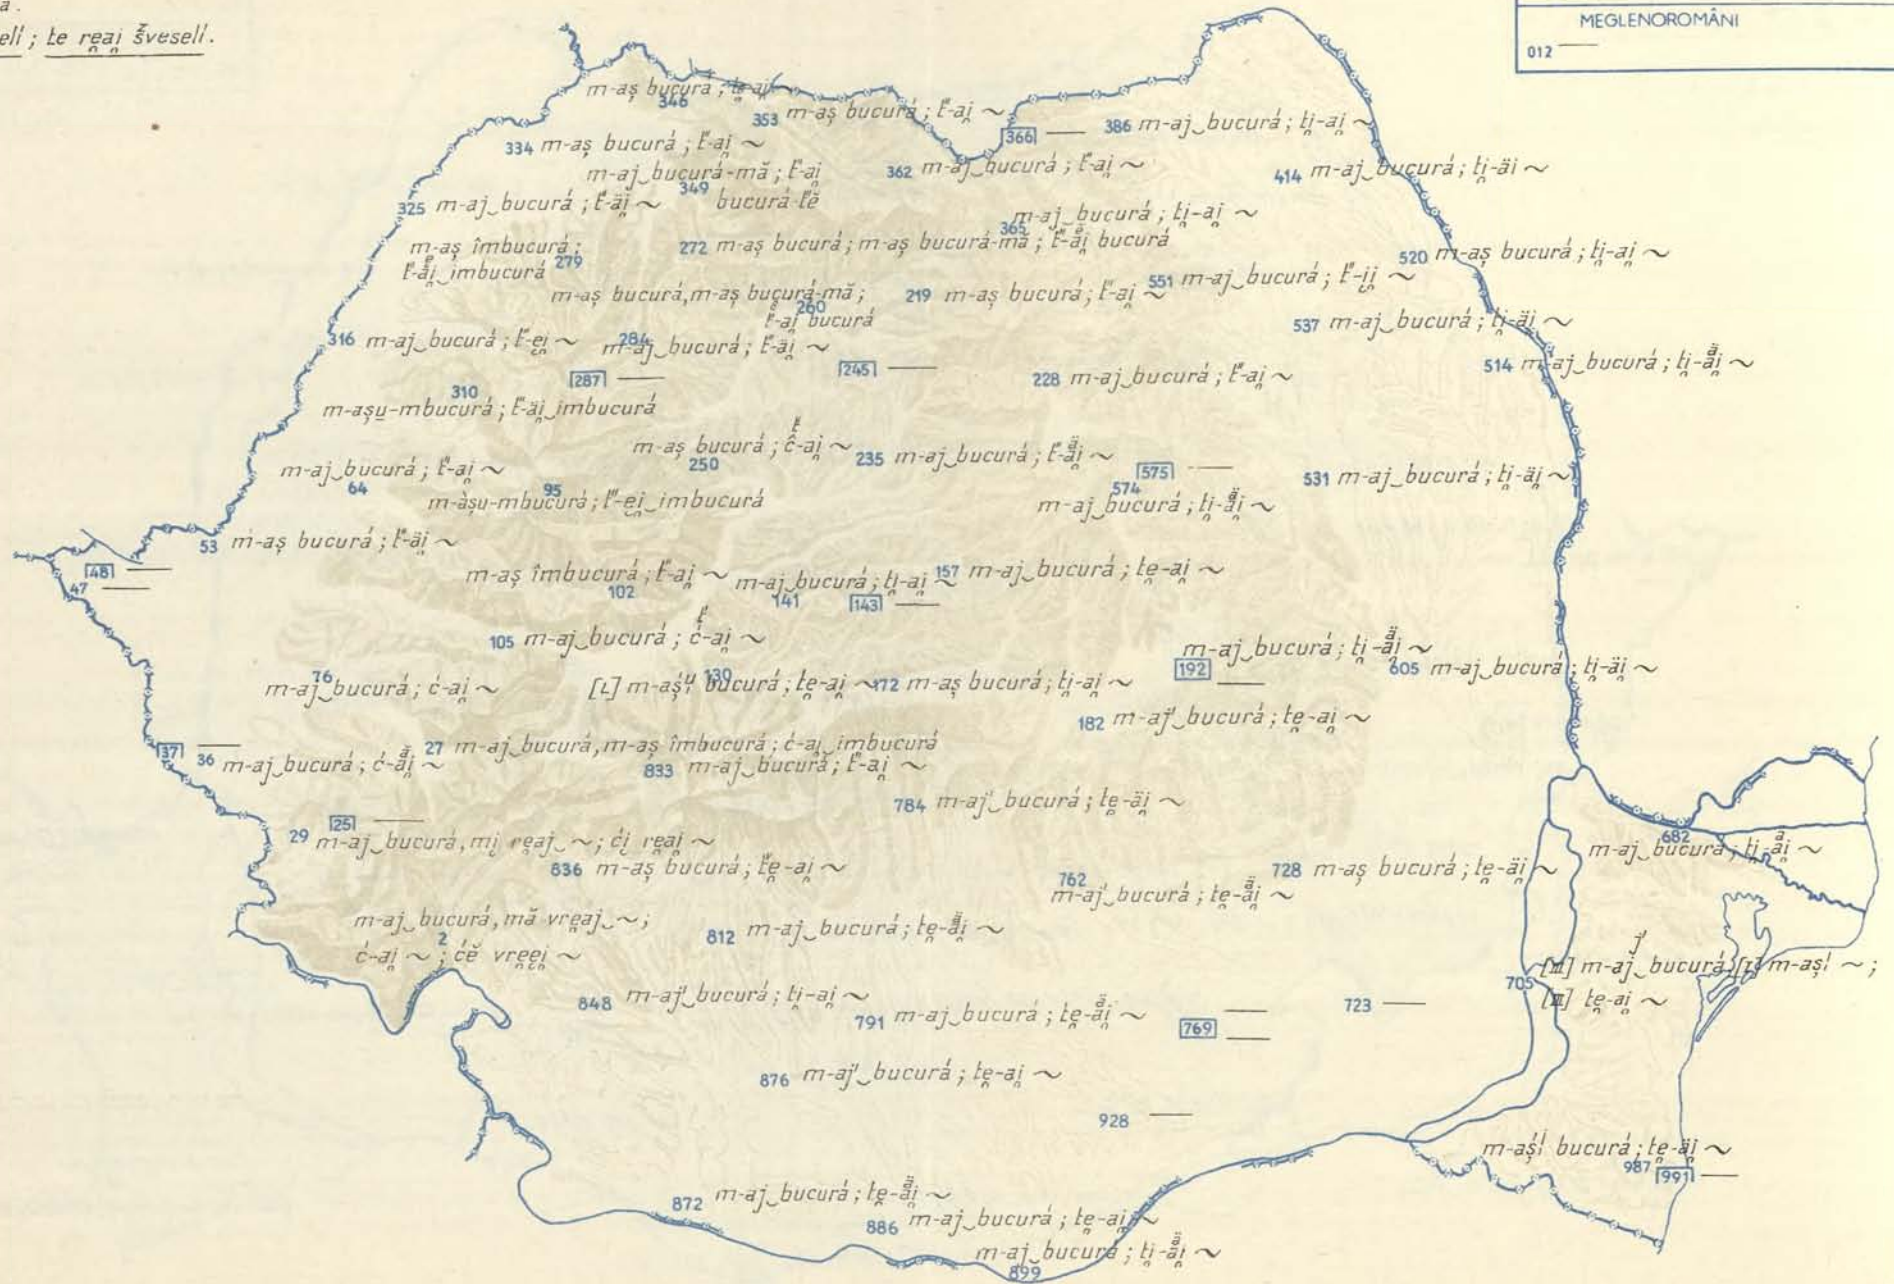 a.
elí; te re̯ai̯ šveselí.
MEGLENOROMÂNI
012 —
m-aș bucurá; t̯e-ai̯ ~
346
353 m-aș bucurá; t́-ai̯ ~
366 —
386 m-aj‿bucurá; ți̯-ai̯ ~
334 m-aș bucurá; t́-ai̯ ~
m-aj‿bucurá-mă; t́-ai̯
349
bucurá-t́ĕ
362 m-aj‿bucurá; t́-ai̯ ~
414 m-aj‿bucurá; ți̯-äi ~
325 m-aj‿bucurá; t́-äi̯ ~
m-aj‿bucurá; ți̯-ai̯ ~
365
m-aș îmbucurá;
279
272 m-aș bucurá; m-aș bucurá-mă; t́-ãi̯ bucurá
520 m-aș bucurá; ți̯-ai̯ ~
551 m-aj‿bucurá; t́-ii̯ ~
m-aș bucurá, m-aș bucurá-mă;
260
t́-ai̯ bucurá
219 m-aș bucurá; t́-ai̯ ~
537 m-aj‿bucurá; ți̯-äi̯ ~
316 m-aj‿bucurá; t́-ei̯ ~
284
m-aj‿bucurá; t́-äi̯ ~
287 —
245 —
228 m-aj‿bucurá; t́-ai̯ ~
514 m-aj‿bucurá; ți̯-ãi̯ ~
310
m-așu̯-mbucurá; t́-äi̯‿imbucurá
m-aș bucurá; ĉ-ai̯ ~
250
235 m-aj‿bucurá; t́-ãi̯ ~
575 —
574
m-aj‿bucurá; ți̯-ãi̯ ~
531 m-aj‿bucurá; ți̯-äi̯ ~
m-aj‿bucurá; t́-ai̯ ~
64
95
m-àșu-mbucurá; t́-ei̯‿imbucurá
53 m-aș bucurá; t́-äi̯ ~
48 —
47 —
m-aș îmbucurá; t́-ai̯ ~
102
m-aj‿bucurá; ți̯-ai̯ ~
141
143 —
157 m-aj‿bucurá; țe̯-ai̯ ~
105 m-aj‿bucurá; ć-ai̯ ~
m-aj‿bucurá; ți̯-ãi̯ ~
192 —
605 m-aj‿bucurá; ți̯-äi̯ ~
76
m-aj‿bucurá; ć-ai̯ ~
130
bucurá; țe̯-ai̯ ~
172 m-aș bucurá; ți̯-ai̯ ~
182 m-aj‿bucurá; țe̯-ai̯ ~
37 —
36 m-aj‿bucurá; ć-ãi̯ ~
27 m-aj‿bucurá, m-aș îmbucurá; ć-ai̯‿imbucurá
833 m-aj‿bucurá; t́-ai̯ ~
784 m-aj‿bucurá; țe̯-äi̯ ~
25 —
29 m-aj‿bucurá, mi̯ re̯aj‿~; ći̯ re̯ai̯ ~
836 m-aș bucurá; t́e̯-ai̯ ~
762
m-aj‿bucurá; țe̯-ãi̯ ~
728 m-aș bucurá; țe̯-äi̯ ~
682
m-aj‿bucurá; ți̯-ãi̯ ~
m-aj‿bucurá, mă vre̯aj‿~;
2
ć-ai̯ ~; ćĕ vre̯ei̯ ~
812 m-aj‿bucurá; țe̯-ãi̯ ~
848 m-aj‿bucurá; ți̯-ai̯ ~
791 m-aj‿bucurá; țe̯-ãi̯ ~
769 —
723 —
705 [II] m-aj‿bucurá, [I] m-așⁱ ~;
[II] țe̯-ai̯ ~
876 m-aj‿bucurá; țe̯-ai̯ ~
928 —
m-așⁱ bucurá; țe̯-äi̯ ~
987
991 —
872 m-aj‿bucurá; țe̯-ãi̯ ~
886 m-aj‿bucurá; țe̯-ai̯ ~
m-aj‿bucurá; ți̯-ãi̯ ~
899